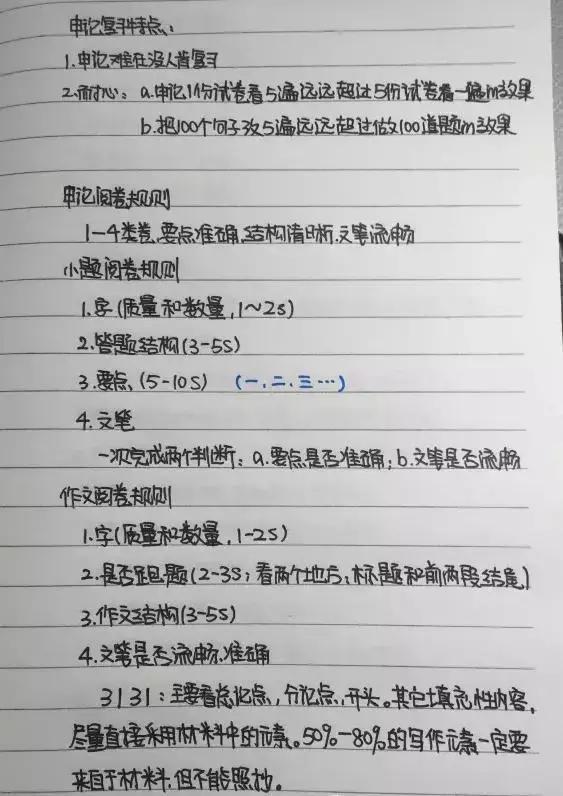 申论复习特点：
1.申论难在没人肯复习
2.耐心：a.申论1份试卷看5遍远远超过5份试卷看一遍的效果
b.把100个句子改5遍远远超过做100道题的效果
申论阅卷规则
1—4类卷，要点准确，结构清晰，文笔流畅
小题阅卷规则
1.字（质量和数量，1~2s）
2.答题结构（3-5s）
3.要点，（5-10s）（一、二、三…）
4.文笔
一次完成两个判断：a.要点是否准确；b.文笔是否流畅
作文阅卷规则
1.字（质量和数量，1-2s）
2.是否跑题（2-3s；看两个地方；标题和前两段结尾）
3.作文结构（3-5s）
4.文笔是否流畅、准确
3131：主要看总论点，分论点，开头。其它填充性内容，
尽量直接采用材料中的元素。50%-80%的写作元素一定要
来自于材料，但不能照抄。